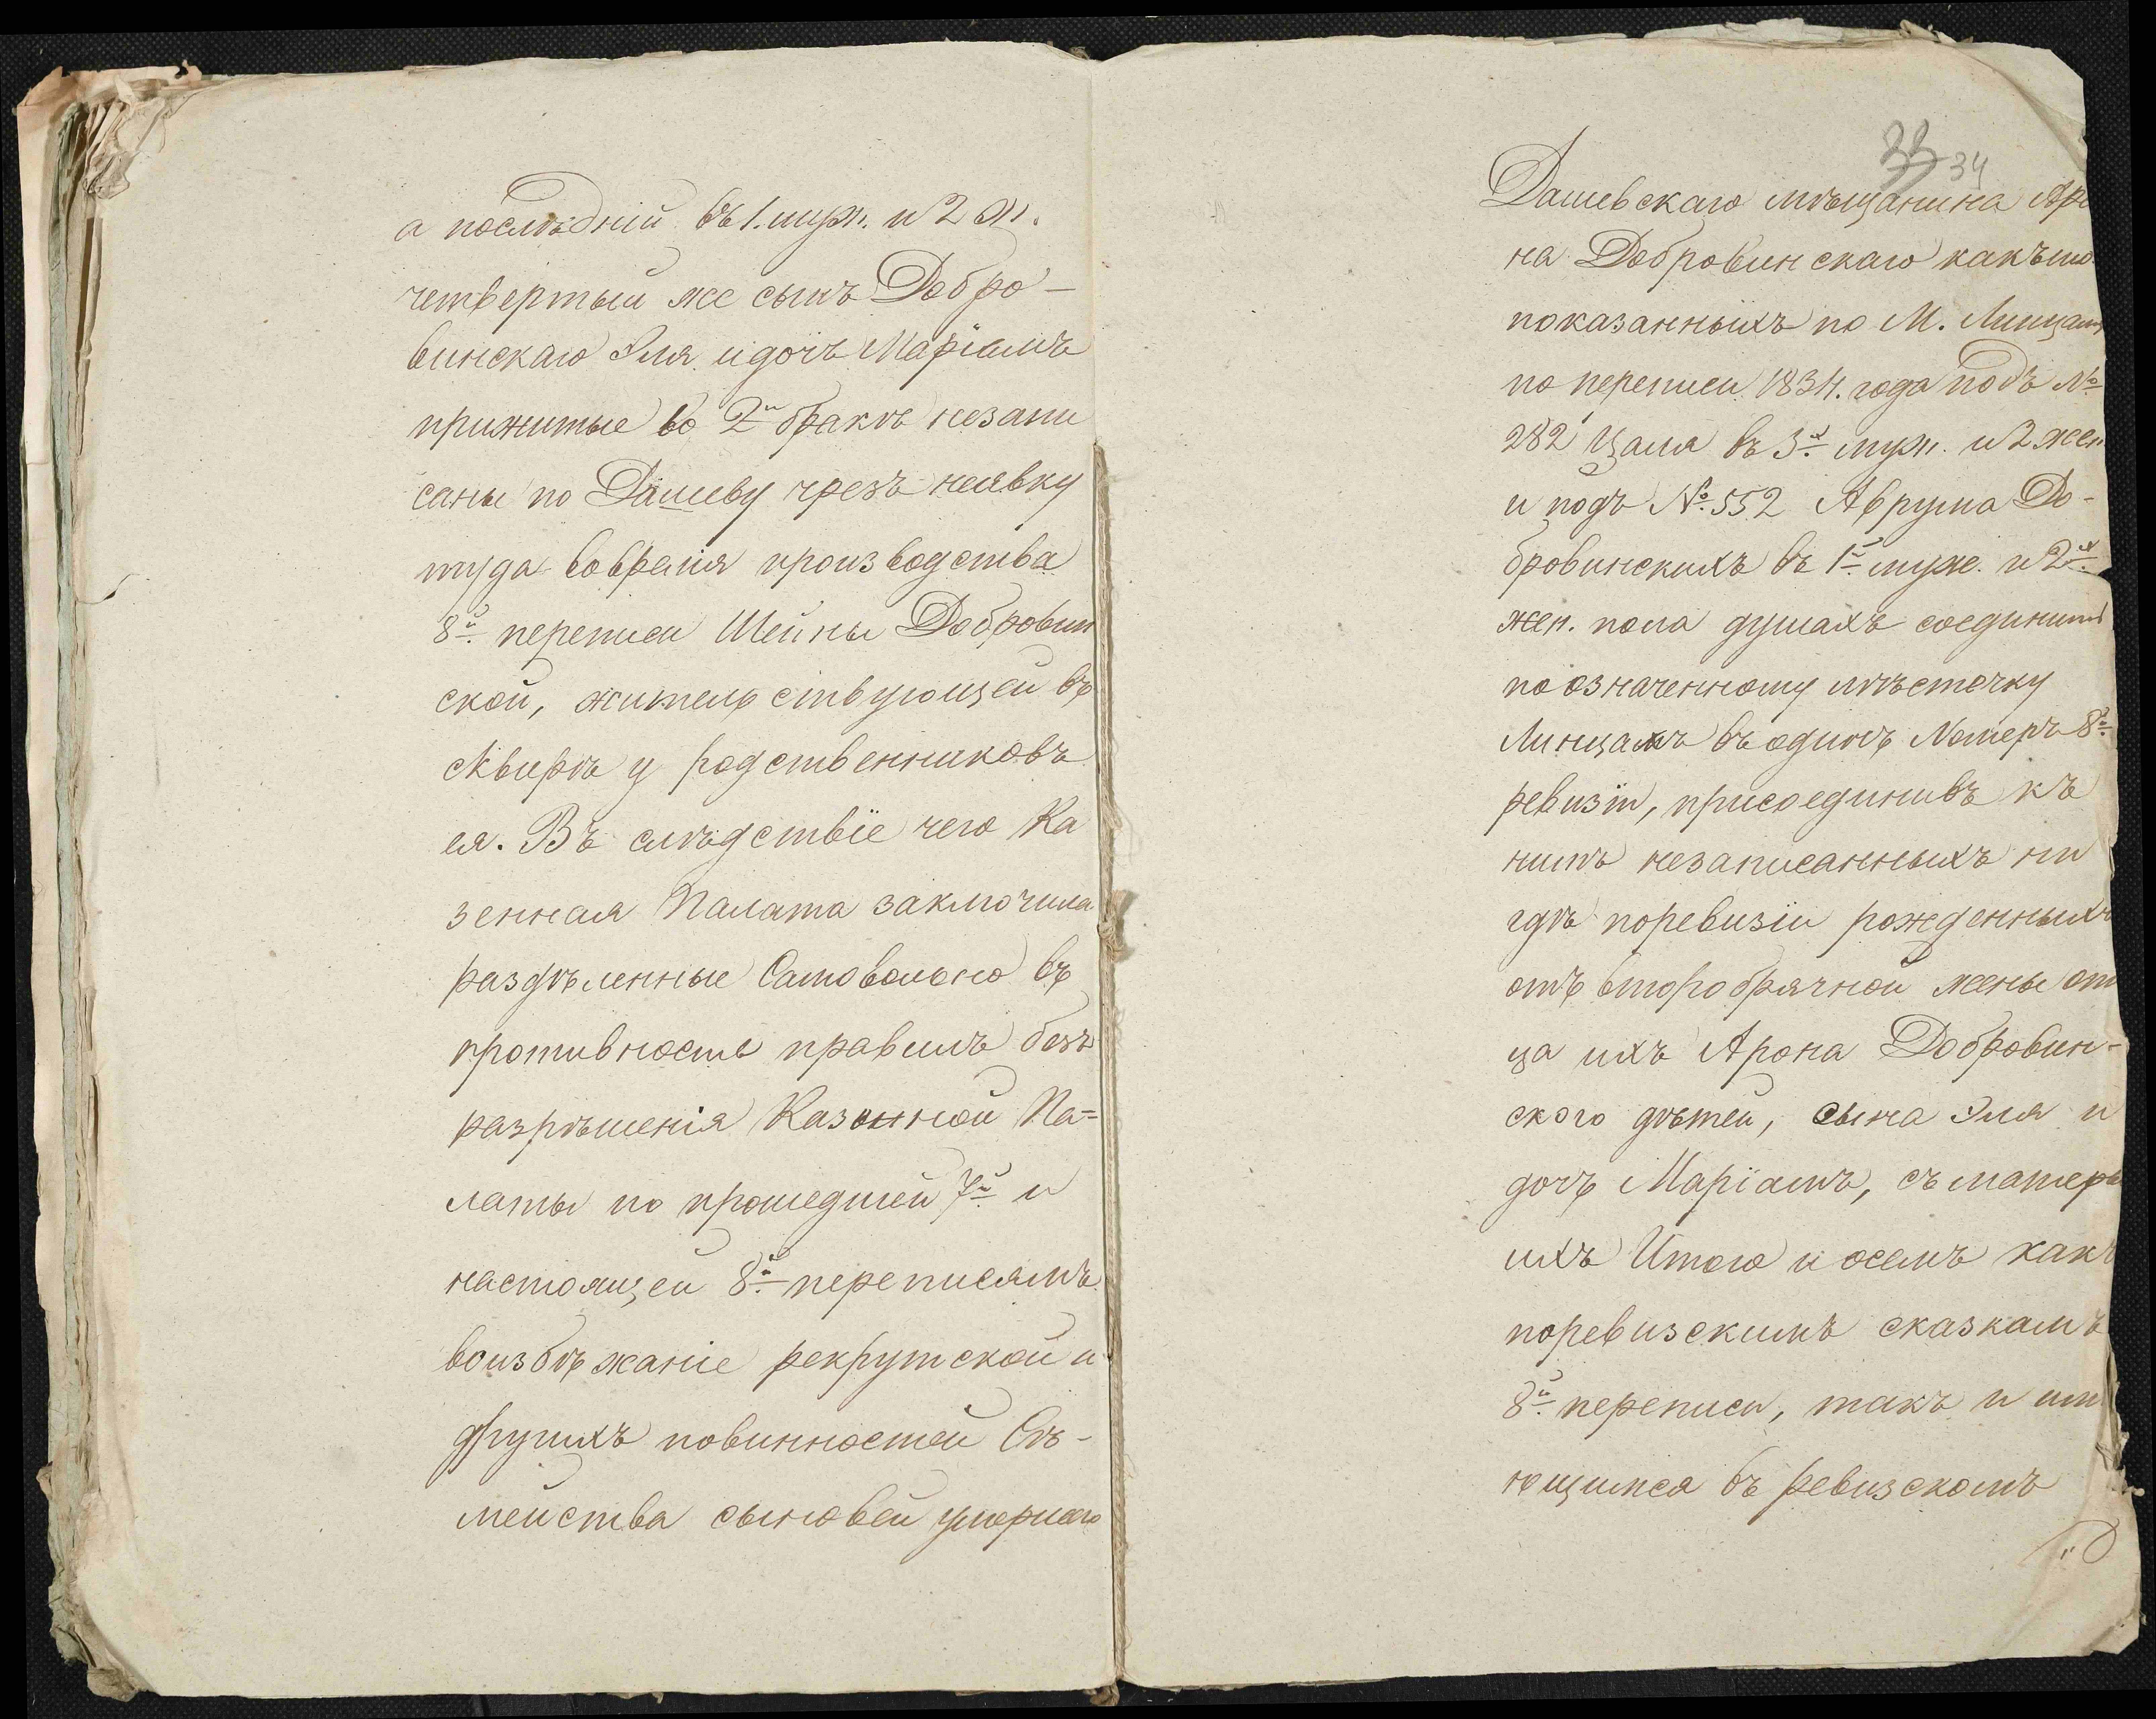 а послѣдній въ 1. муж. и 2 ж.
четвертый же сынъ Добро-
винскаго Эля и дочь Маріамъ
прижитые во 2й бракѣ незапи
саны по Дашеву чрезъ неявку
туда вовремя производства
8й переписи Шейны Добровин
ской, жительствующей въ
Сквирѣ у родственниковъ
ея. Въ слѣдствіе чего Ка
зенная Палата заключила
раздѣленные Самовольно въ
противность правилъ безъ
разрѣшенія Казенной Па=
латы по прошедшей 7й и
настоящей 8й переписямъ
воизбѣжаніе рекрутской и
другихъ повинностей Сѣ-
мейства сыновей умершаго
33 34
Дашевскаго мѣщанина Аро
на Добровинскаго какъ то
показанныхъ по М. Линцамъ
по переписи 1834. года подъ №
282 Цаля въ 3х муж. и 2 жен
и подъ №. 552 Аврума До-
бровинскихъ въ 1й муж. и 2х
жен. пола душахъ соединить
по означенному мѣстечку
Линцамъ въ одинъ Номеръ 8й
ревизіи, присоединивъ къ
нимъ незаписанныхъ ни
гдѣ поревизіи рожденныхъ
отъ второбрачной жены от
ца ихъ Арона Добровин-
ского дѣтей, сына Эля и
дочь Маріамъ, съ матерью
ихъ Итою и о семъ какъ
поревизскимъ сказкамъ
8й переписи, такъ и имѣ
ющимся въ ревизскомъ